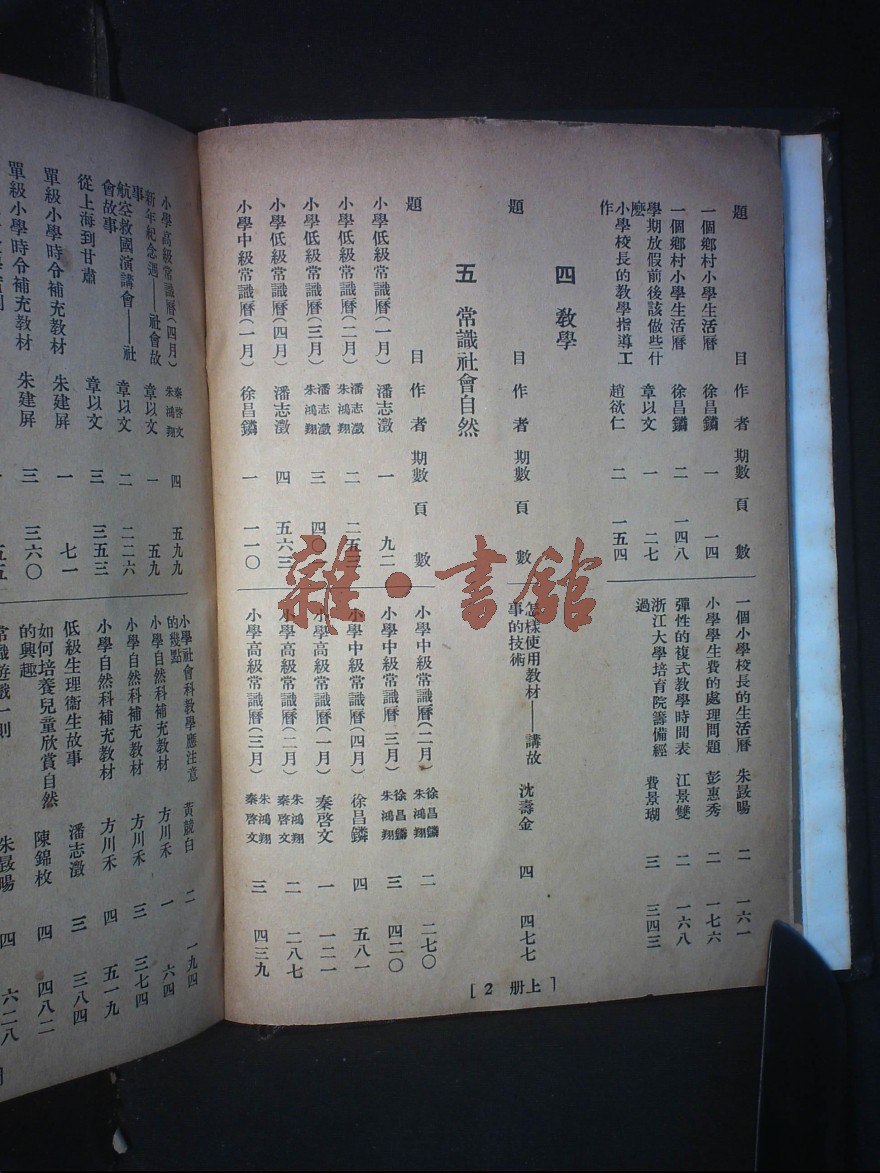 題 目 作者 期數 頁數
一個鄉村小學生活曆 徐昌鏻 一 一四
一個鄉村小學生活曆 徐昌鏻 二 一四八
學期放假前後該做些什麽 章以文 一 二七
小學校長的教學指導工作 趙欲仁 二 一五四
一個小學校長的生活曆 朱晸暘 二 一六一
小學學生費的處理問題 彭惠秀 二 一七六
彈性的複式教學時間表 江景雙 二 一六八
浙江大學培育院籌備經過 費景瑚 三 三四三
四 教學
題 目 作者 期數 頁數
怎樣使用教材——講故事的技術 沈壽金 四 四七七
五 常識社會自然
題 目 作者 期數 頁數
小學低級常識曆(一月) 潘志澂 一 九二
小學低級常識曆(二月) 潘志澂 朱鴻翔 二 二五三
小學低級常識曆(三月) 潘志澂 朱鴻翔 三 四〇
小學低級常識曆(四月) 潘志澂 四 五六三
小學中級常識曆(一月) 徐昌鏻 一 一一〇
小學中級常識曆(二月) 徐昌鏻 朱鴻翔 二 二七〇
小學中級常識曆(三月) 徐昌鏻 朱鴻翔 三 四二〇
小學中級常識曆(四月) 徐昌鏻 四 五八一
小學高級常識曆(一月) 秦啓文 一 一二一
小學高級常識曆(二月) 朱鴻翔 秦啓文 二 二八七
小學高級常識曆(三月) 朱鴻翔 秦啓文 三 四三九
[2 册上]
小學高級常識曆(四月) 秦啓文 朱鴻翔 四 五九九
新年紀念週——社會故事 章以文 一 五九
航空救國演講會——社會故事 章以文 二 二二六
從上海到甘肅 章以文 三 三五三
單級小學時令補充教材 朱建屏 一 七一
單級小學時令補充教材 朱建屏 三 三六〇
小學社會科教學應注意的幾點 黃競白 二 一九四
小學自然科補充教材 方川禾 一 六四
小學自然科補充教材 方川禾 三 三七四
小學自然科補充教材 方川禾 四 五一九
低級生理衞生故事 潘志澂 三 三八四
如何培養兒童欣賞自然的興趣 陳錦枚 四 四八二
常識遊戲一則 朱晸暘 四 六二八
雜·書館